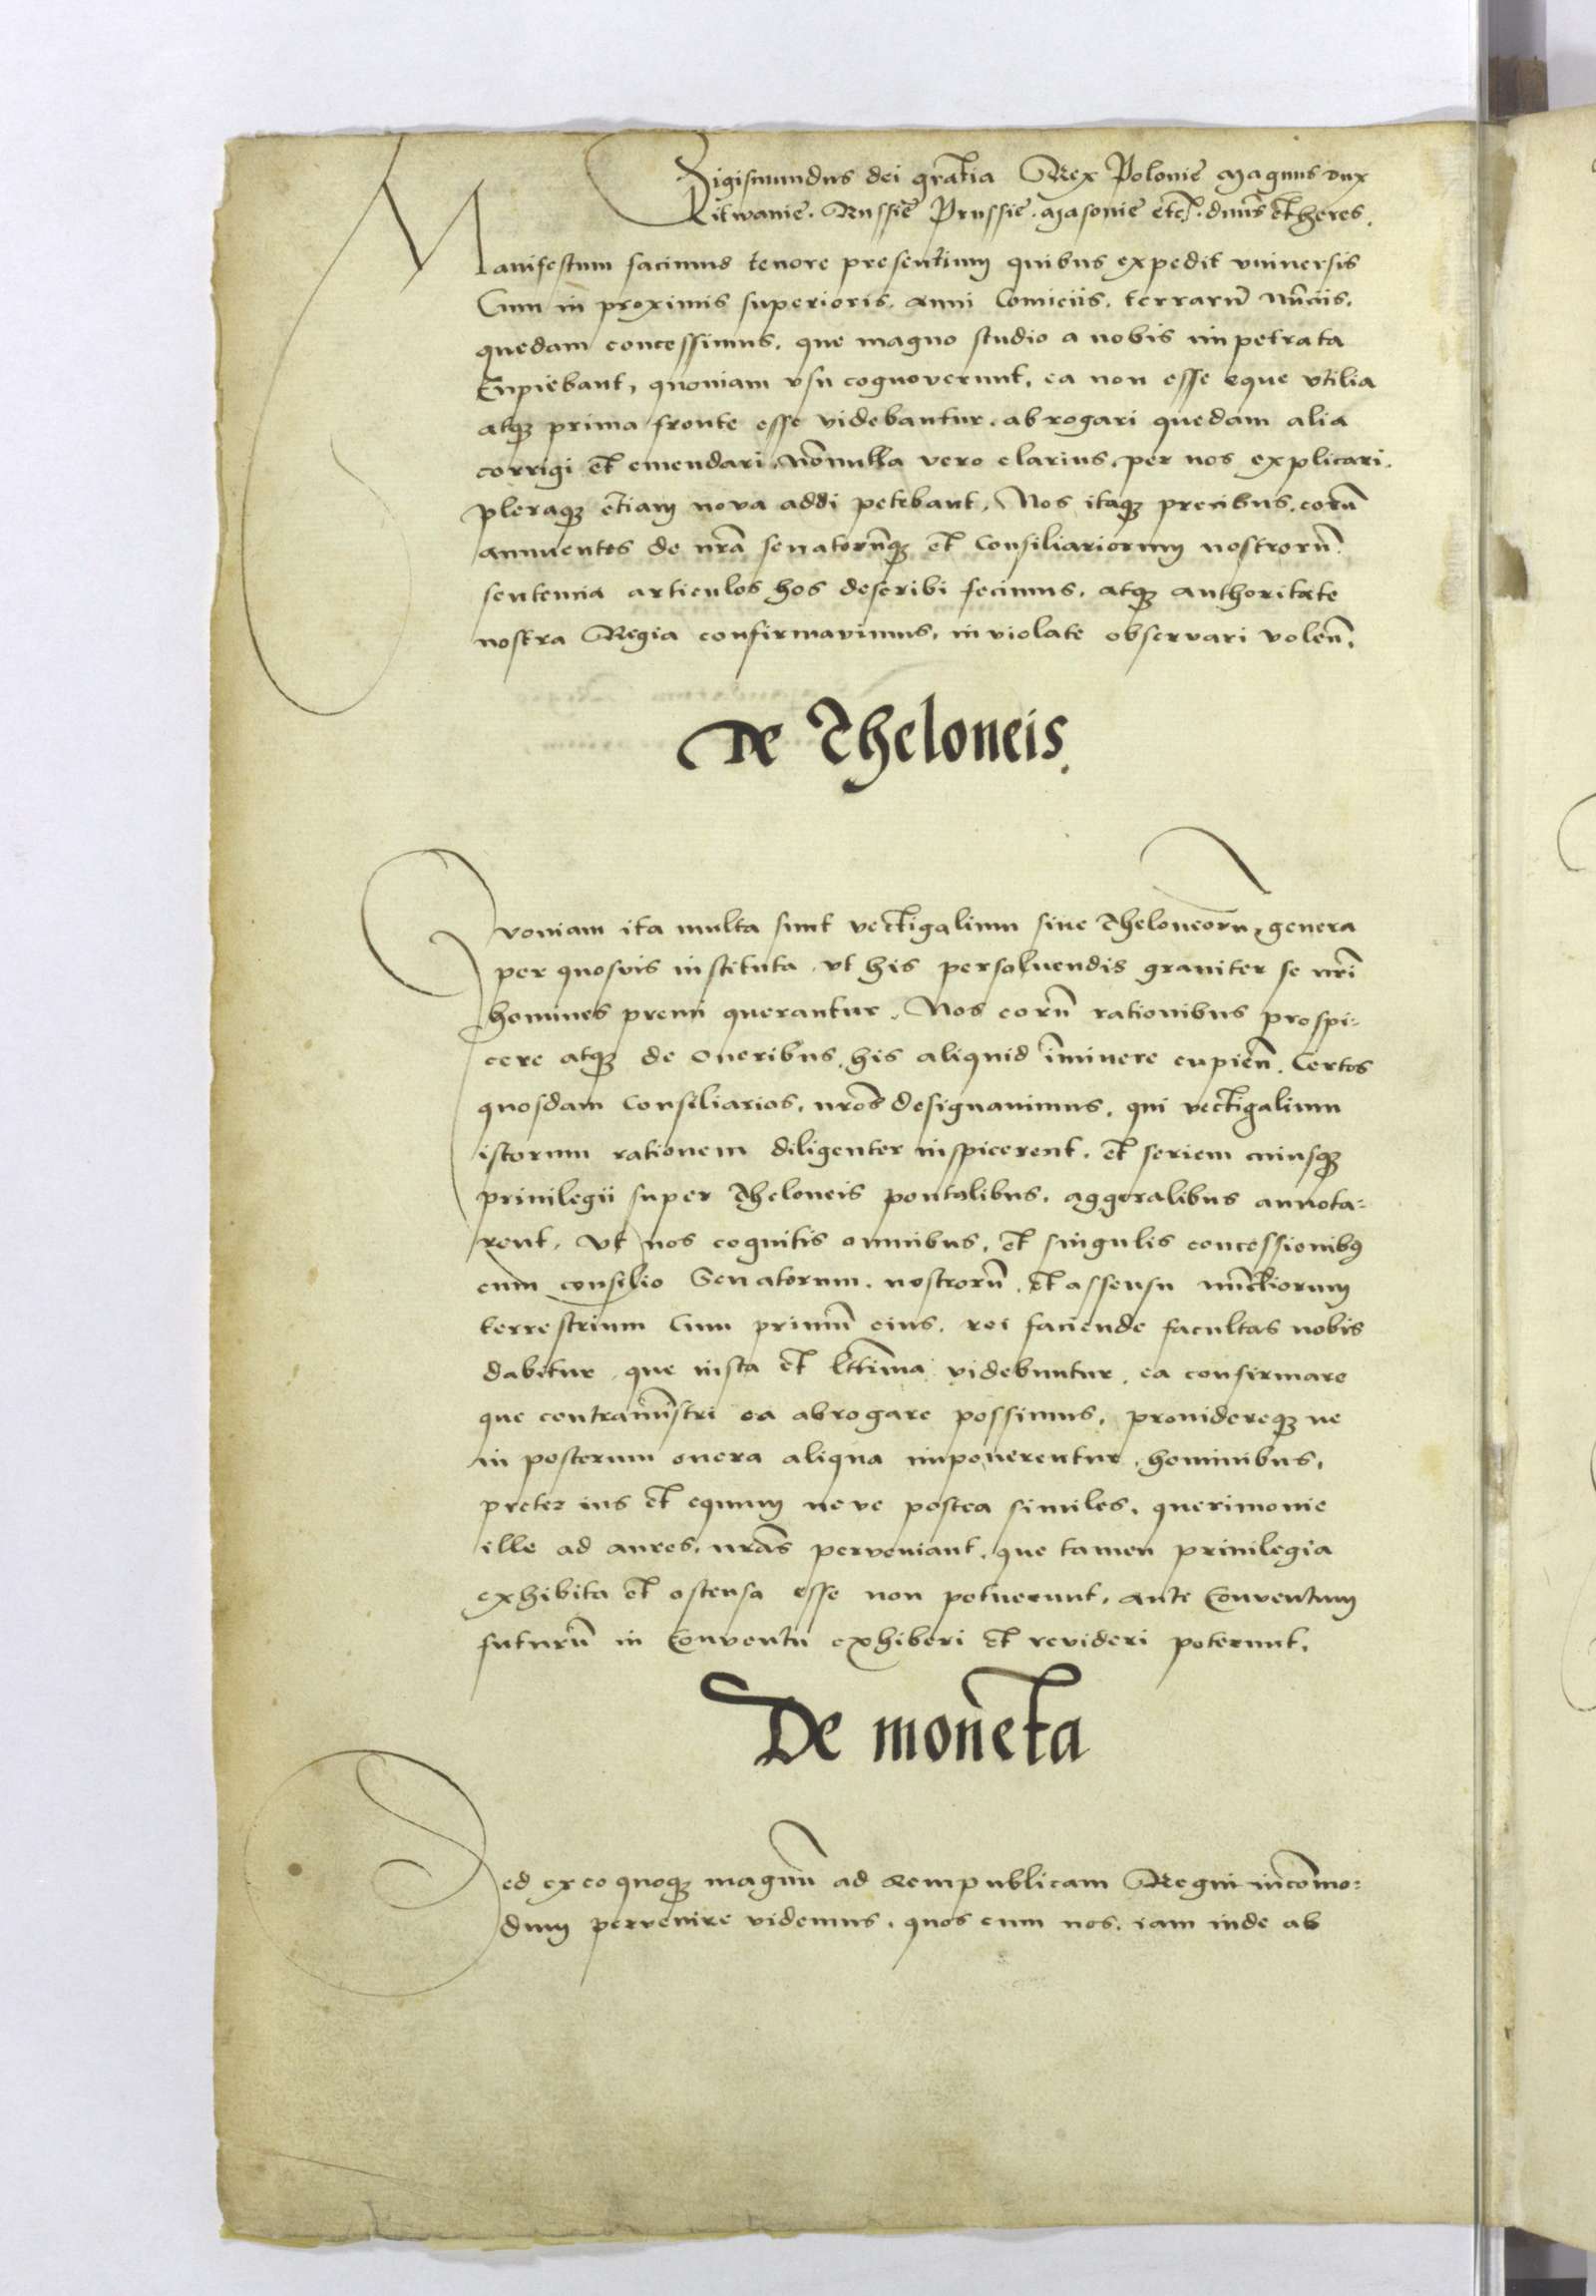 Sigismundus dei gratia Rex Polonie Magnus dux
Litwanie. Russie Prussie. Masovie etc. dnus et heres.
Manifestum facimus tenore presentium quibus expedit vniuersis
Cum in proximis superioris. anni Comiciis. terrarũ nũciis.
quedam concessimus. que magno studio a nobis impetrata
Cupiebant, quoniam vsu cognoverunt, ea non esse eque vtilia
atqȝ prima fronte esse videbantur. abrogari quedam alia
corrigi et emendari. nõnulla vero clarius. per nos explicari.
pleraqȝ etiam nova addi petebant. Nos itaqȝ precibus. eorũ
annuentes de nrã senatorũqȝ et Consiliariorum nostrorũ.
sentencia articulos hos describi fecimus. atqȝ authoritate
nostra Regia confirmavimus. inviolate observari volen̄.
De Theloneis.
Qvoniam ita multa sunt vectigalium siue Theloneorũ, genera
per quosvis instituta. vt his persoluendis grauiter se nrĩ
homines premi querantur. Nos eorũ rationibus prospi-
cere atqȝ de Oneribus. his aliquid ĩminere cupien̄. Certos
quosdam Consiliarios. nrõs designauimus. qui vectigalium
istorum rationem diligenter inspicerent. et seriem cuiusqȝ
priuilegii super Theloneis pontalibus. aggeralibus annota-
rent. vt nos cognitis omnibus. et singulis concessionibꝰ
cum consilio Senatorum. nostrorũ. et assensu nũctiorum
terrestrium Cum primũ eius. rei faciende facultas nobis
dabitur. que iusta et lttima videbuntur. ea confirmare
que contra ea abrogare possimus. prouidereqȝ ne
in posterum onera aliqua imponerentur. hominibus.
preter ius et equum neve postea similes. querimonie
ille ad aures. nrãs perveniant. que tamen priuilegia
exhibita et ostensa esse non potuerunt. ante Conventum
futurũ in Conventu exhiberi et revideri poterunt.
De moneta
Sed ex eo quoqȝ magnũ ad Rempublicam Regni incõmo-
dum pervenire videmus. quos cum nos. iam inde ab